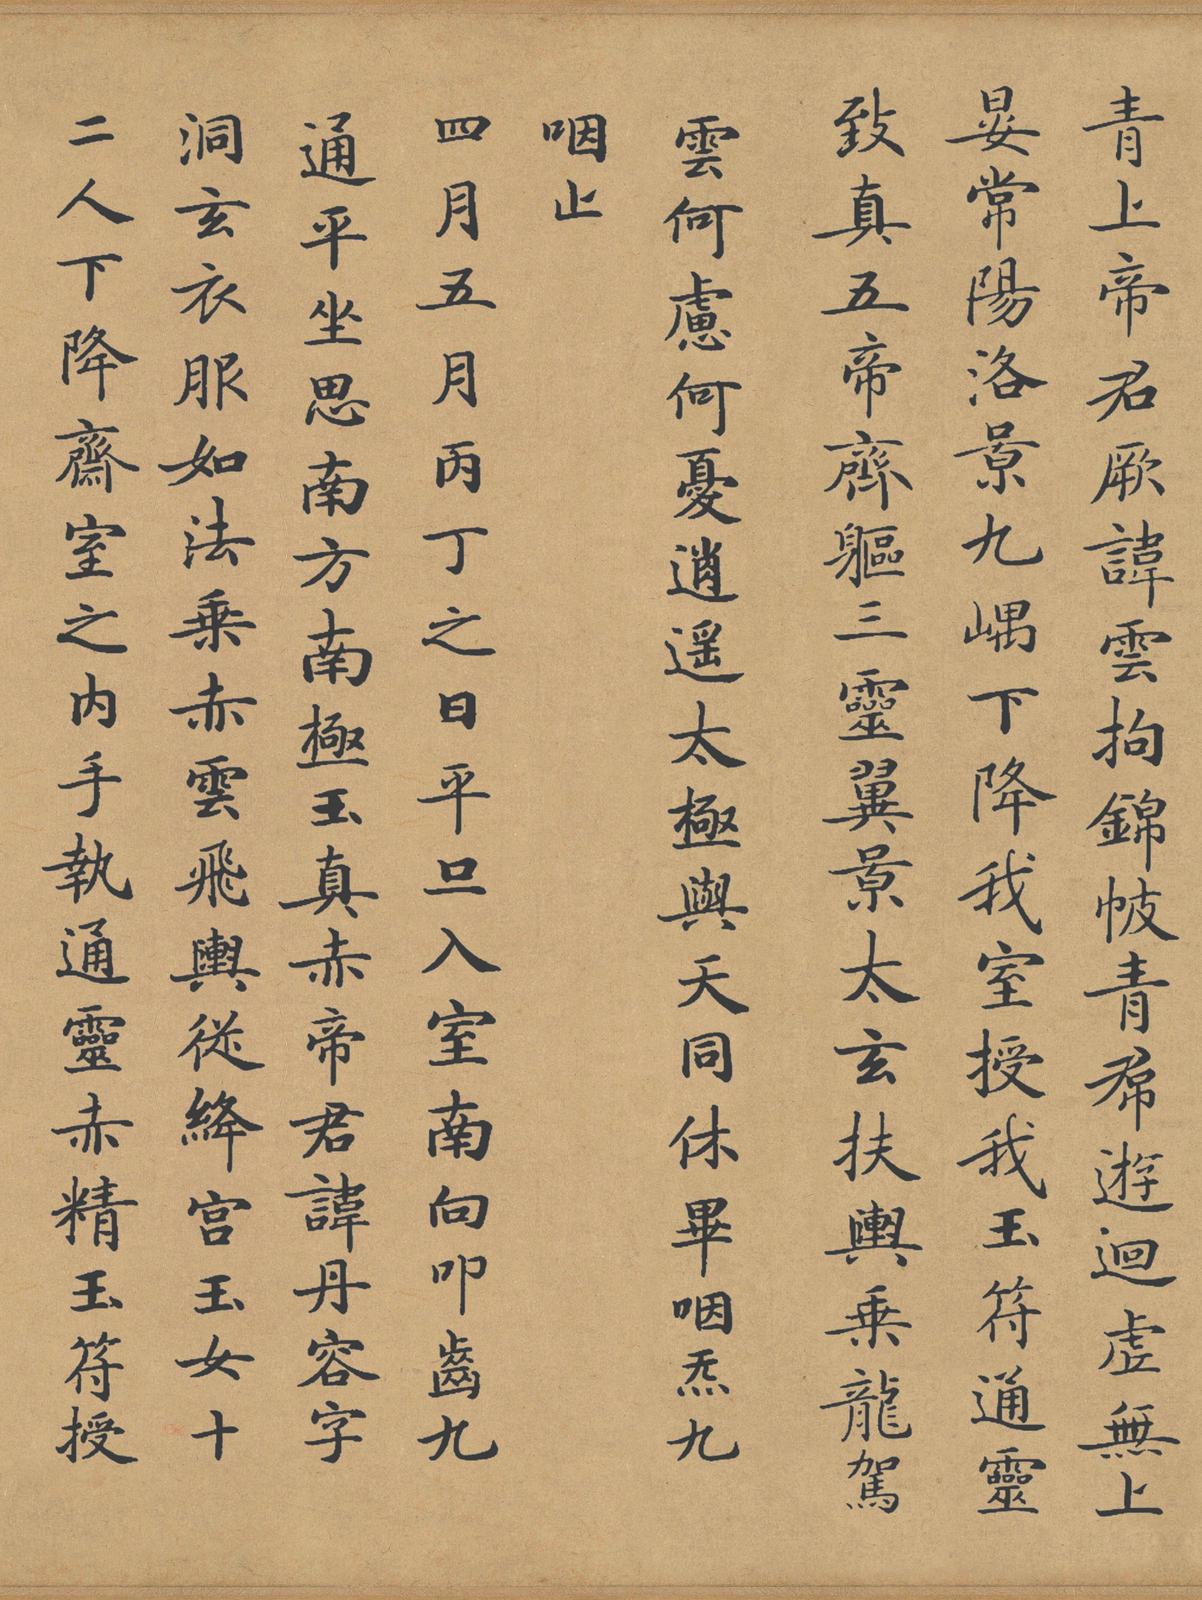 青上帝君厥諱雲拘錦帔青帬遊迴虛無上
晏常陽洛景九嵎下降我室授我玉符通靈
致真五帝齊軀三靈翼景太玄扶輿乘龍駕
雲何慮何憂逍遥太極與天同休畢咽炁九
咽止
四月五月丙丁之日平旦入室南向叩齒九
通平坐思南方南極玉真赤帝君諱丹容字
洞玄衣服如法乘赤雲飛輿從絳宮玉女十
二人下降齋室之内手執通靈赤精玉符授